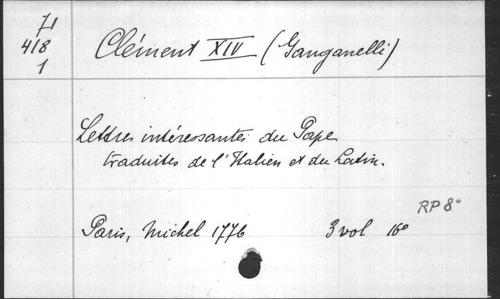 71
418
1
Clément XIV (Ganganelli)
Lettres intéressantes du Pape
traduites de l'Italien et du Latin.
RP 8°
Paris, Michel 1776 3 vol 16°